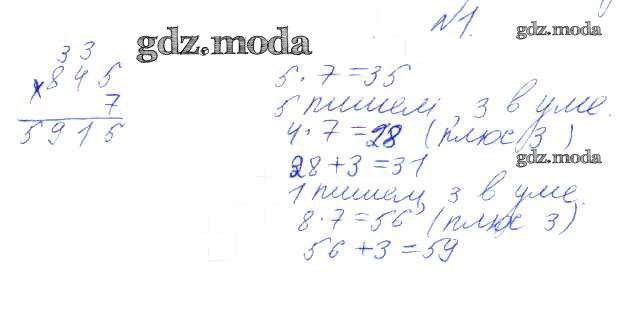 №1.
gdz.moda
gdz.moda
3 3
× 8 4 5
7
5 9 1 5
5 · 7 = 35
5 пишем, 3 в уме.
4 · 7 = 28 (плюс 3)
28 + 3 = 31
gdz.moda
1 пишем, 3 в уме.
8 · 7 = 56 (плюс 3)
56 + 3 = 59